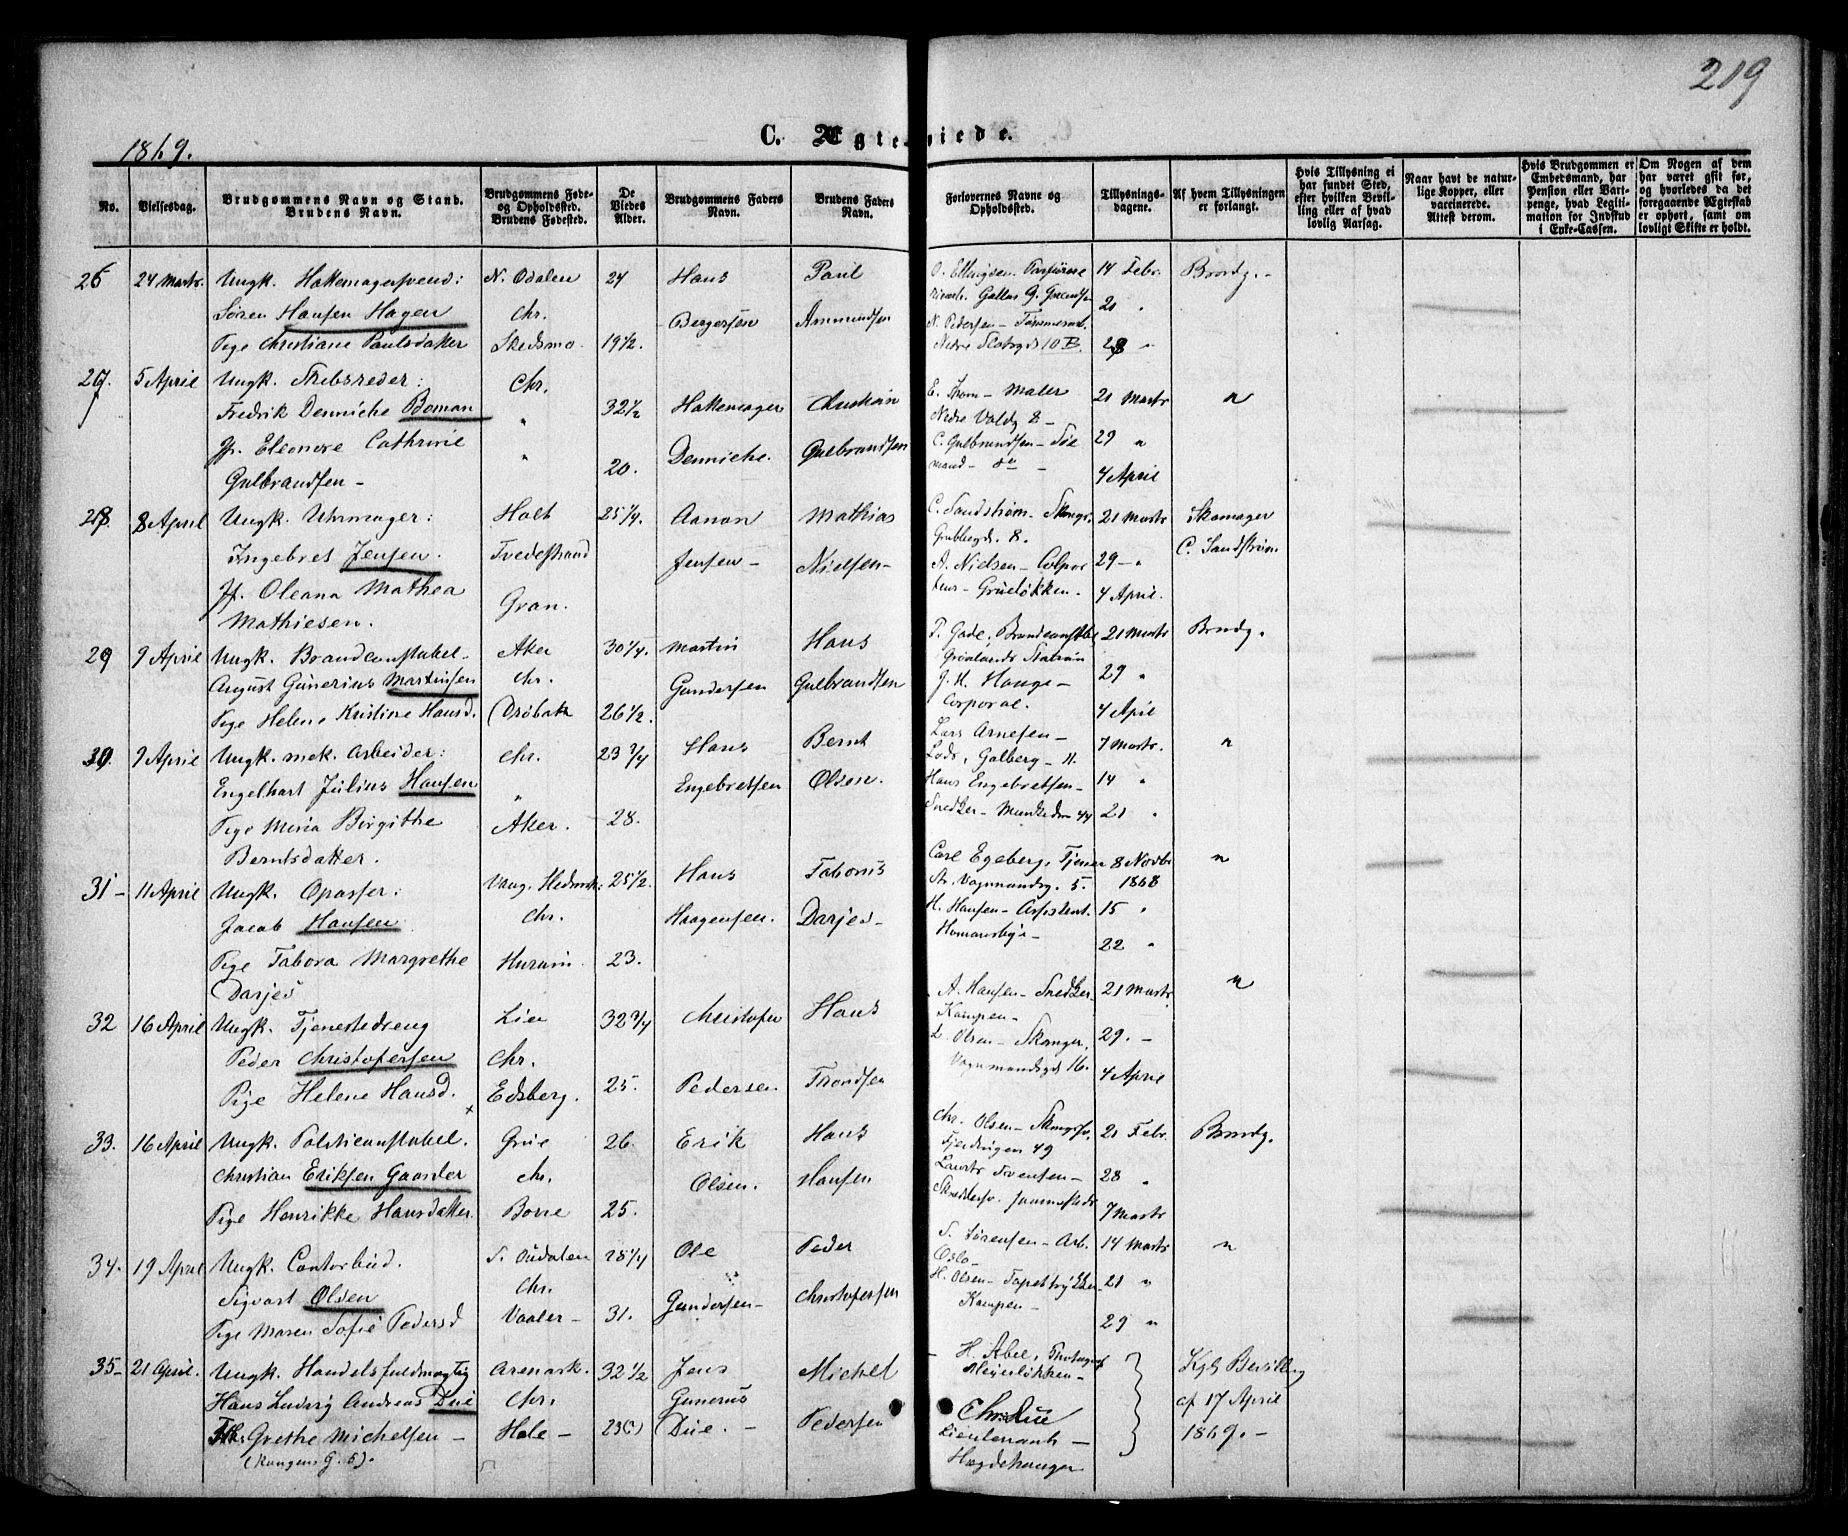 219
1869.
C. Ægteviede.
No.
Vielsesdag.
Brudgommens Navn og Stand.
Brudens Navn.
Brudgommens Føde-
og Opholdssted.
Brudens Fødested.
De
Viedes
Alder.
Brudgommens Faders
Navn.
Brudens Faders
Navn.
Forlovernes Navne og
Opholdssted.
Tillysnings-
dagene.
Af hvem Tillysningen
er forlangt.
Hvis Tillysning ei
har fundet Sted,
efter hvilken Bevil-
ling eller af hvad
lovlig Aarsag.
Naar havt de natur-
lige Kopper, eller
vaccinerede.
Attest derom.
Hvis Brudgommen er
Embedsmand, har
Pension eller Vart-
penge, hvad Legiti-
mation for Indskud
i Enke-Cassen.
Om Nogen af dem
har været gift før,
og hvorledes da det
foregaaende Ægteskab
er ophørt, samt om
lovligt Skifte er holdt.
26 24 Marts. Ungk. Høkkemagersvend: N. Odalen 24 Hans Paul 14 Febr. Brudg.
Søren Hansen Hagen Chr. Bergersen Ammundsen 21 "
Pige Christiane Paulsdatter Skedsmo 19½. N. Pedersen Nedre Slotsgd 10 B. 28 "
27. 5 April Ungk. Skibsreder: Chr. E. Thom - Maler 21 Marts "
Fredrik Denniche Boman " 32½ Hattemager Christian Nedre Voldg 8 -
Jf. Eleonore Cathrine " Denniche. Gulbrandsen C. Gulbrandsen - Søe 29 "
Gulbrandsen - 20. mand - do - 4 April
28. 8 April Ungk. Uhrmager: Holt 25¼. Aanon Mathias C. Sandstrøm - 21 Marts Skomager
Ingebret Jensen. Tvedestrand Jensen - Nielsen - Grubbegd. 8. C. Sandstrøm
Jf. Oleana Mathea Gran. A. Nielsen - Colpor 29 - "
Mathiesen. teur - Grüeløkken. 4 April.
29 9 April Ungk. Brandconstabel - Aker 30¼. Martin Hans P. Gade, Brandconstbl 21 Marts Brudg.
August Gunerius Martinsen Chr. Gundersen Gulbrandsen Grønlands Station 29 "
Pige Helene Kristine Hansd. Drøbak 26½. J. H. Hauge - Corporal. 4 April
30. 9 April Ungk. mek. Arbeider: Chr. 23¾ Hans Bernt Lars Arnesen - 7 Marts. "
Engelhart Julius Hansen " Engebretsen Olsen. Lods, Galberg - 11. 14 "
Pige Maria Birgithe Aker. 28. Hans Engebretsen -
Berntsdatter. Snedker - Munkedm 44 21 "
31 - 11 April Ungk. Opasser: Vang. Hedmk: 25½. Hans Taborus Carl Egeberg, Tjener 8 Novbr "
Jacob Hansen Chr. Haagensen. Darjes - St. Vognmandsg. 5. 1868
Pige Tabora Margrethe Hurum. 23. H. Hansen - Assistent. 15 "
Darjes Homansbye - 22 "
32 16 April Ungk. Tjenestedreng Lier 32¾ Christofer Hans A. Hansen - Snedker. 21 Marts "
Peder Christofersen Chr. Kampen - 29. -
Pige Helene Hansd. Edsberg. 25. Pedersen Trondsen L. Olsen - Vognmandsgd 16. 4 April
33. 16 April Ungk. Politiconstabel. Grue 26. Erik Hans Chr. Olsen - 21 Febr. Brudg.
Christian Eriksen Gaarder Chr. Olsen. Hansen Fjerdingen 49
Pige Henrikke Hansdatter. Borre 25. Laurts Svensen - 28 "
7 Marts
34. 19 April Ungk. Contorbud. S. Oudalen 28¼ Ole Peder S. Sørensen - Arb. 14 Marts "
Sigvart Olsen Chr. Gundersen - Christofersen Oslo -
Pige Maren Sofie Pedersd Vaaler - 31. H. Olsen - Tapettrykker 21 "
Kampen - 29 "
35 - 21 April. Ungk. Handelsfuldmægtig Aremark. 32½ Jens Michel H. Abel, Photograf Kgl. Bevilling
Hans Ludvig Andreas Due Chr. Gunerus Meyerløkken - af 17 April
Grethe Michelsen - Hole - 23 Due. - Pedersen Chr. Due 1869. -
(Kongens G. 5). Lieutenant -
Hægdehaugen